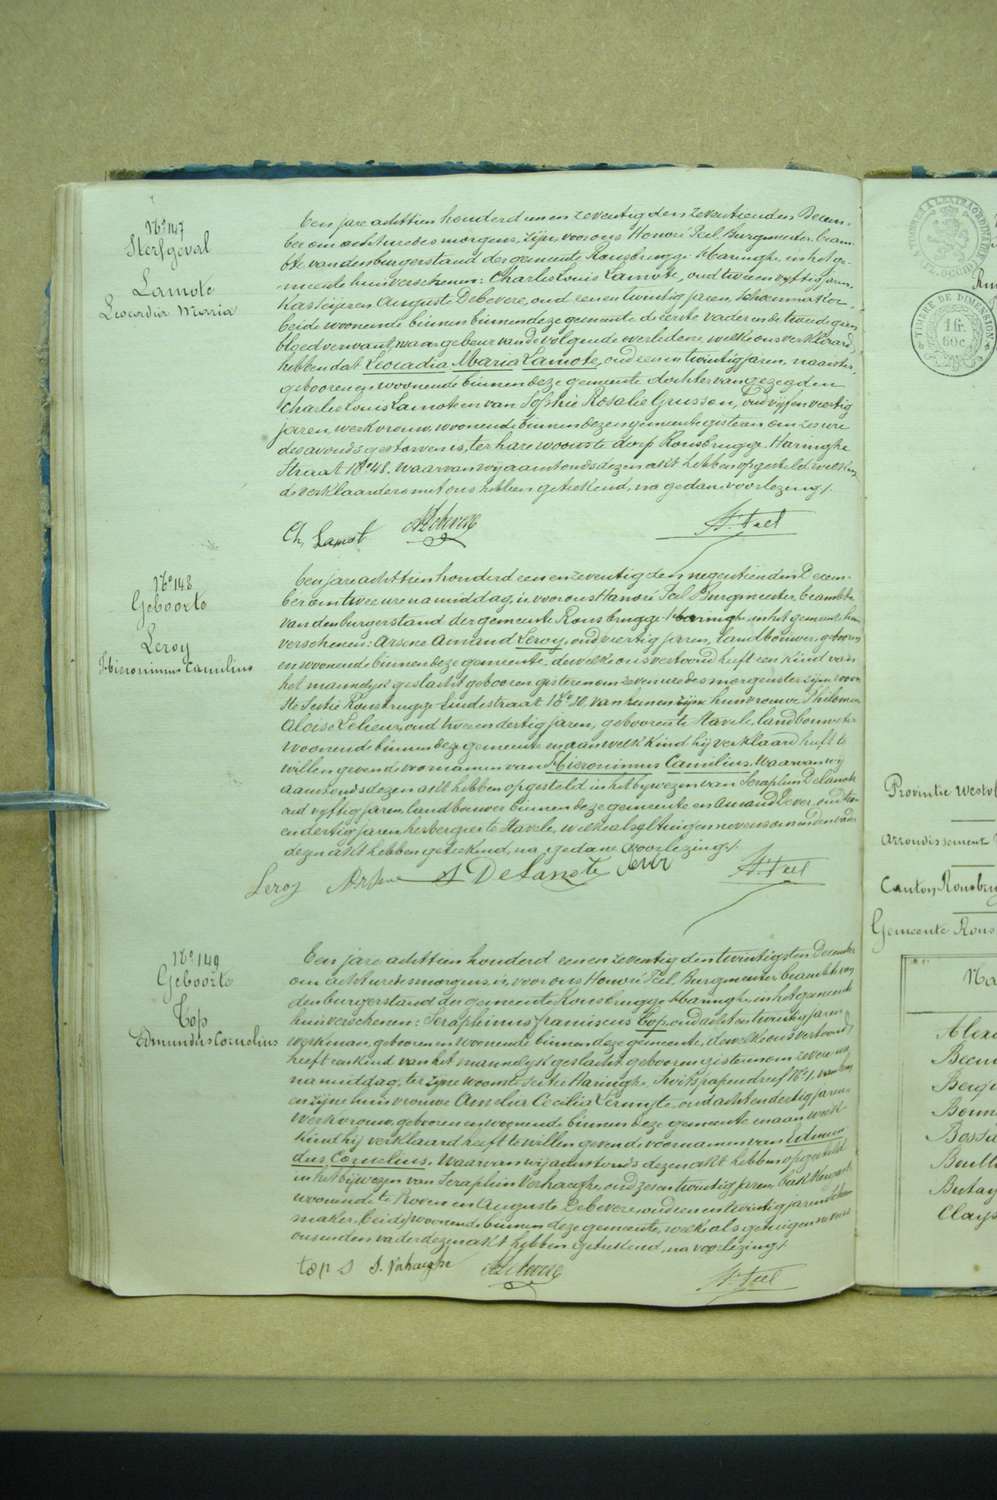 N° 147
Sterfgeval
Lamote
Leocardia Marria
Een jare achttien honderd een en zeventig den zeventienden Decem-
ber om acht ure des morgens, zijn, voor ons Honoré Feel, Burgmeester beam-
bte van den burgerstand der gemeente Rousbrugge-Haringhe in het ge-
meente huis verschenen: Charles Louis Lamote, oud twee en vyftig jaren,
Kasseijer en Auguste Debevere, oud een en twintig jaren, schoenmaker
beide woonende binnen deze gemeente de eerste vader en de tweede geen
bloedverwant, waar gebuer van de volgende overledene, welke ons verklaard
hebben dat Leocadia Maria Lamote, oud een en twintig jaren, naaister,
geboren en woonende binnen deze gemeente dochter van gezegden
Charles Louis Lamote en van Sophie Rosalie Grusson, oud vijf en veertig
jaren, werkvrouw, woonende binnen deze gemeente gisteren om zes ure
des avonds gestorven is, ter hare woonste dorp Rousbrugge-Haringhe
Straat N° 48. Waarvan wij aanstonds dezen akt hebben opgesteld welken
de verklaarders met ons hebben geteekend, na gedane voorlezing.
Ch, Lamot ADebevere H. Feel
N° 148
Geboorte
Leroy
Hieronimus Camilius
Een jare achttien honderd een en zeventig den negentienden Decem-
ber om twee ure namiddag, is voor ons Honoré Feel Burgmeester beambte
van den burgerstand der gemeente Rousbrugge-Haringhe in het gemeente huis
verschenen: Arsene Amand Leroy, oud veertig jaren, landbouwer, geboren
en woonende binnen deze gemeente, dewelke ons vertoond heeft een kind van
het mannelijk geslacht geboren gisteren om zeven ure des morgens ter zijne woon-
ste Sectie Rousbrugge Lindestraat N° 30, van hem en zijne huisvrouw Philomena
Aloise Lelieur, oud twee en dertig jaren, geboren te Stavele, landbouwster
woonende binnen deze gemeente en aan welk kind hij verklaard heeft te
willen geven de voornamen van Hieronimus Camilius. Waarvan wij
aanstonds dezen akt hebben opgesteld in het bijwezen van Seraphin Delanote
oud vyftig jaren, landbouwer binnen deze gemeente en Amand Dever, oud
en dertig jaren herbergier te Stavele, welke als getuigen nevens ons en den vader
dezen akt hebben geteekend, na gedane voorlezing.
Leroy Arsene S Delanote Dever H. Feel
N° 149
Geboorte
Top
Edmundus Cornelius
Een jare achttien honderd een en zeventig den twintigsten December
om acht ure des morgens, is voor ons Honoré Feel, Burgmeester beambte van
den burgerstand der gemeente Rousbrugge-Haringhe, in het gemeente
huis verschenen: Seraphinus Franciscus Top, oud acht en twintig jaren
werkman, geboren en woonende binnen deze gemeente, dewelke ons vertoond
heeft een kind van het mannelijk geslacht geboren gisteren om zeven ure
namiddag, ter zijne woonste sectie Haringhe, N° 1. van hem
en zijne huisvrouwe Amelia Cecilia Vermyte, oud acht en dertig jaren
werkvrouw, geboren en woonende binnen deze gemeente en aan welk
kind hij verklaard heeft te willen geven de voornamen van Edmun
dus Cornelius. Waarvan wij aanstonds dezen akt hebben opgesteld
in het bijwezen van Seraphin Verhaeghe, oud zes en twintig jaren,
woonende te Roven en Auguste Debevere, oud een en twintig jaren schoen
maker, beide woonende binnen deze gemeente, welke als getuigen nevens
ons en den vader dezen akt hebben geteekend, na voorlezing.
top S S. Verhaeghe ADebevere H. Feel
TIMBRE DE DIMENSION
1 fr.
60 c.
Provintie Westvl
Arrondissement
Canton Rousbrug
Gemeente Rous
Na
Alex
Becu
Bergu
Bonn
Bossu
Boutt
Butay
Claijs